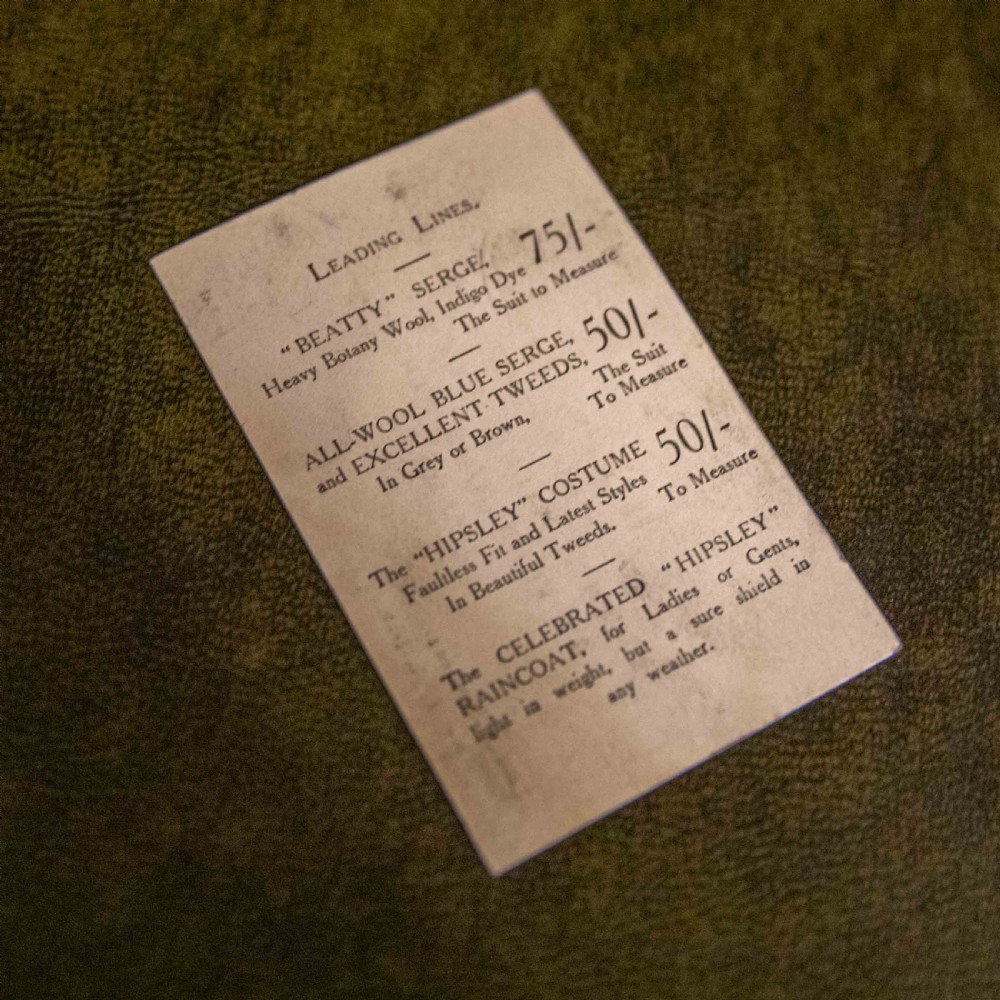 LEADING LINES.
"BEATTY" SERGE, 75/-
Heavy Botany Wool, Indigo Dye
The Suit to Measure
ALL-WOOL BLUE SERGE, 50/-
and EXCELLENT TWEEDS, The Suit
In Grey or Brown, To Measure
The "HIPSLEY" COSTUME 50/-
Faultless Fit and Latest Styles
In Beautiful Tweeds. To Measure
The CELEBRATED "HIPSLEY"
RAINCOAT, for Ladies or Gents,
light in weight, but a sure shield in
any weather.